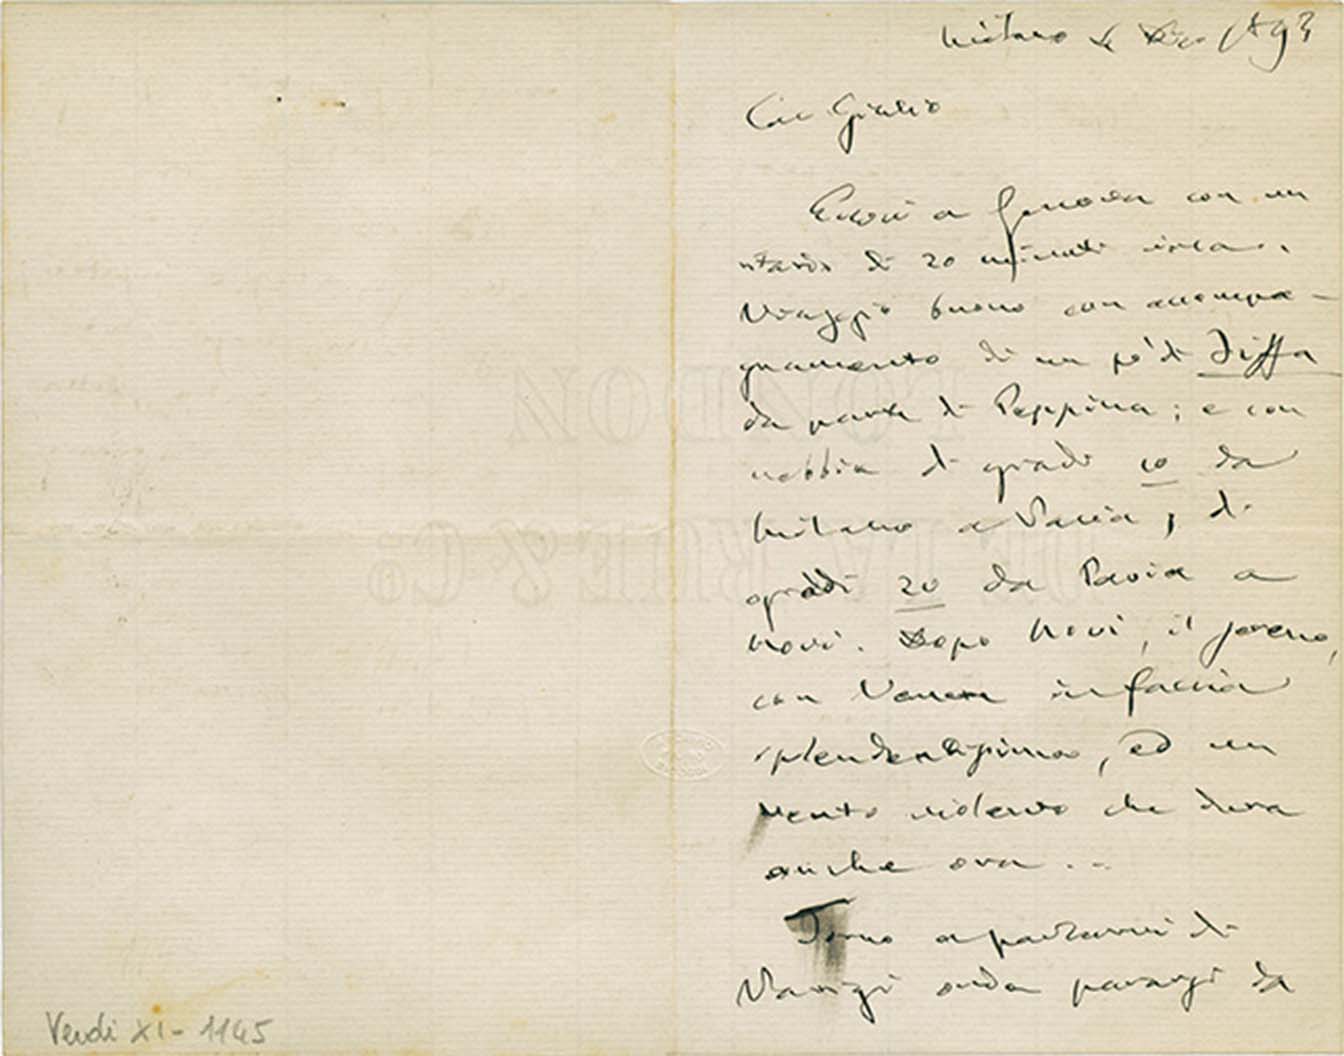 Milano 4 Dic 1893
Car Giulio
Eccoci a Genova con un
ritardo di 20 minuti circa.
Viaggio buono con accompa-
gnamento di un po' di Fiffa
da parte di Peppina; e con
nebbia di gradi 10 da
Milano a Pavia; di
gradi 20 da Pavia a
Novi. Dopo Novi, il sereno,
con Venere in faccia
splendentissima, ed un
vento violento che dura
anche ora...
Torno a parlarvi di
da
LONDON
DE LA RUE & Co
Verdi XI - 1145